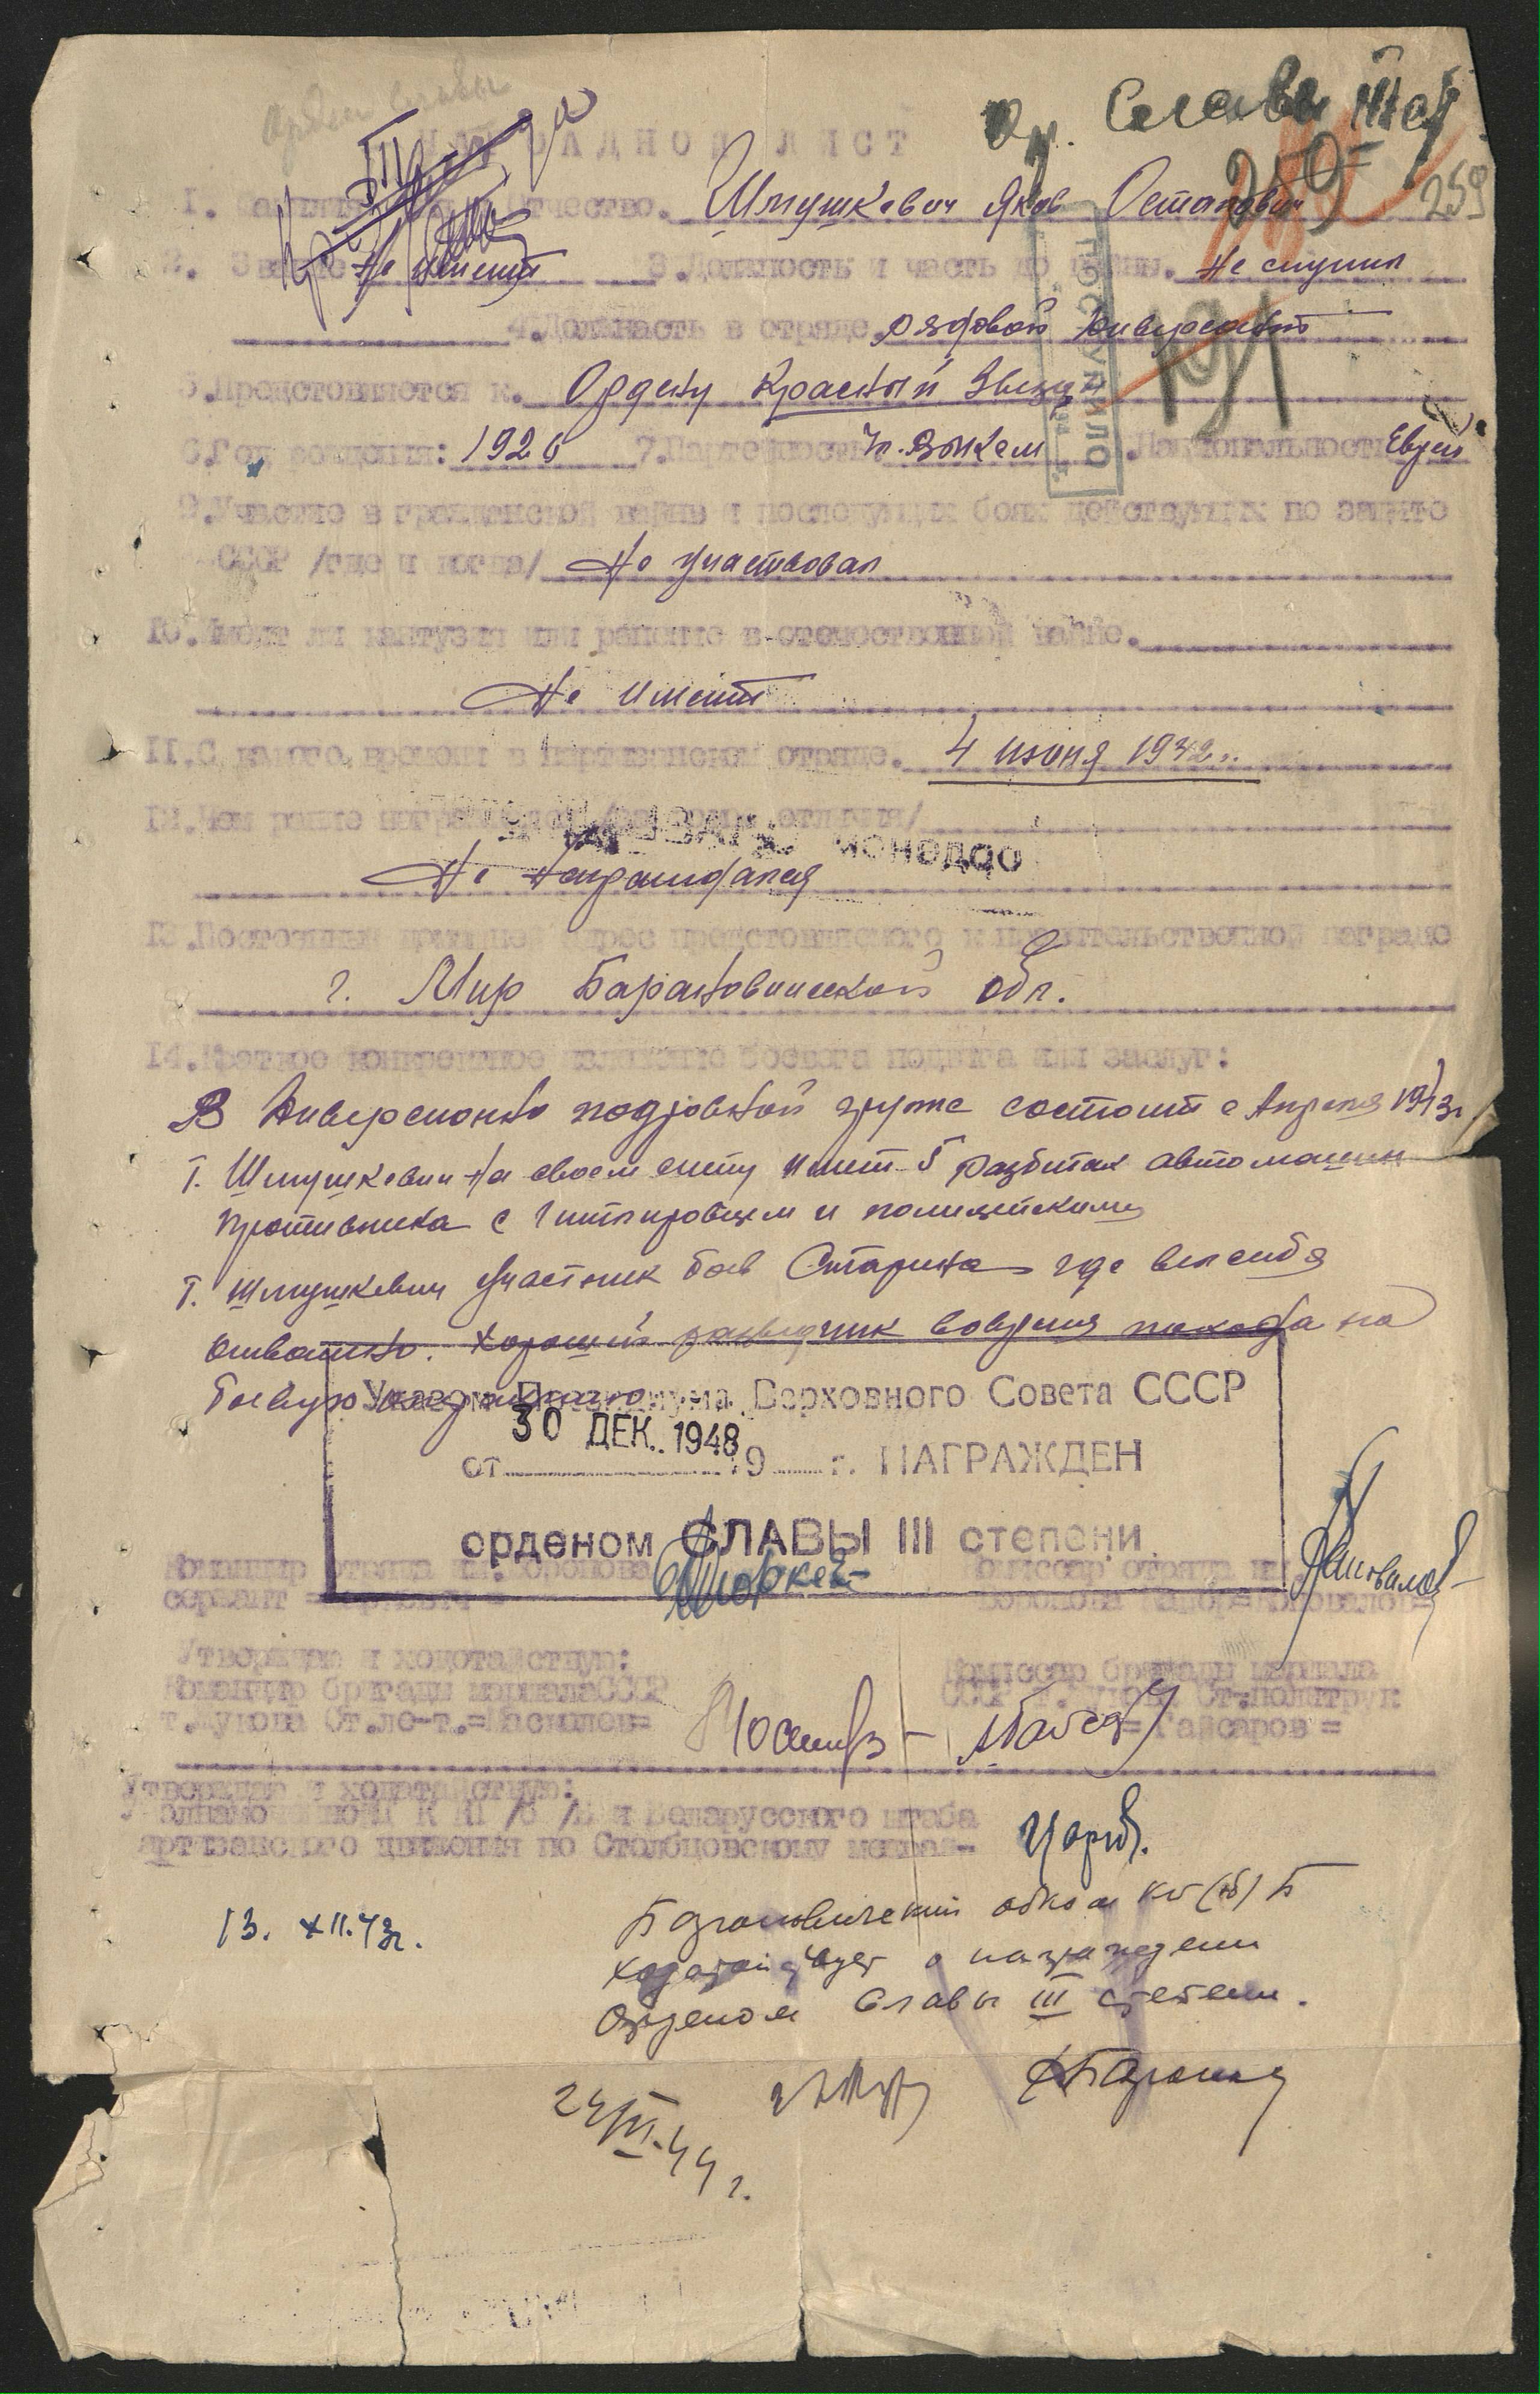 Орден Славы
Ор. Славы III ст
НАГРАДНОЙ ЛИСТ
259
259
1. Фамилия имя отчество. Шмушкевич Яков Остапович
2. Звание Не имеет 3. Должность и часть до войны. Не служил
191
4. Должность в отряде. рядовой диверсант
5. Предстовляется к. Ордену Красный Звезд
ПОСТУПИЛО
6. Год рождения: 1926 7. Партейность Чл. ВЛКСМ 8. Национальность Еврей
9. Участие в гражданской войне и последующих боях действующих по защите
СССР /где и когда/ Не участвовал
10. Имеет ли контузии или ранение в отечественной войне.
Не имеет
11. С какого времени в партизанском отряде. 4 июня 1942г.
12. Чем ранее награжден /за какие отличия/
Не награждался
13. Постоянный домашней адрес предстовляемого к провительственной награде
г. Мир Барановичской обл.
14. Краткое конкретное изложение боевого подвига или заслуг:
В диверсионно подрывной групе состоит с Апреля 1943г
Т. Шмушкевич на своем счету имеет 5 разбитых автомашин
противника с гитлировцем и полицейскими
Т. Шмушкевич участник боев Старина где вел себя
отважно. Хороший разведчик вовремя похода на
боевую операцию
Указом Президиума Верховного Совета СССР
30 ДЕК. 1948
от 19 г. НАГРАЖДЕН
орденом СЛАВЫ III степени
Командир отряда им. Воронова Комиссар отряда им.
сержант Воронова =Коновалов=
Утверждаю и ходотайствую:
Командир бригады маршала СССР Комиссар бригады маршала
т. Жукова Ст. ле-т. =Василов= СССР т. Жукова Ст. политрук
=Гайсаров=
Утверждаю и ходотайствую:
Уполнамоченно ЦК КП/б/Б и Беларусского штаба
партизанского движения по Столбцовскому межрай-
13. XII. 43г.
Барановический обком КП(б)Б
ходатайствует о награждении
Орденом Славы III степени.
24/XI-44 г.